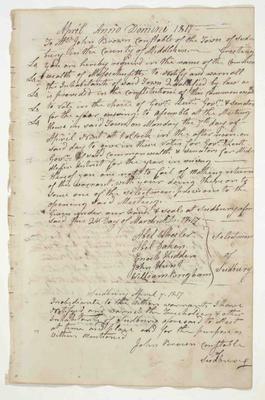 April Anno Domini 1817
To Mr John Brown Constable of the Town of Sud-
bury in the County of Middlesex Greeting
you are hereby required in the name of the Common
wealth of Massachusetts to notify and warn all
the Inhabitants of said Town qualified by law as
is provided in the Constitution of this Commonwealth
to vote in the choice of Govr Lieut Govr & Senators
for the year ensuing to assemble at the Meeting
House in said Town on Monday the 7 day of
April next at o Clock in the after noon on
said day to give in their votes for Govr Lieut
Govr of said Commonwealth & Senators for
District for the year ensuing
And you are not to fail of making return
of this warrant with your doing thereon to
some one of the Selectmen previous to the
opening said Meeting
Given under our hands & seals at Sudbury
this 24 day of March AD 1817
Abel Wheeler
Asahel Eaton
Enoch Kidder
John Hunt
William Brigham
Selectmen
of
Sudbury
Sudbury April 7. 1817
to the within warrant I have
Notified and warned the freeholders & other
Inhabitants of Sudbury to meet
at time and place and for the purpose
within mentioned
John Brown Constable
of
Sudbury